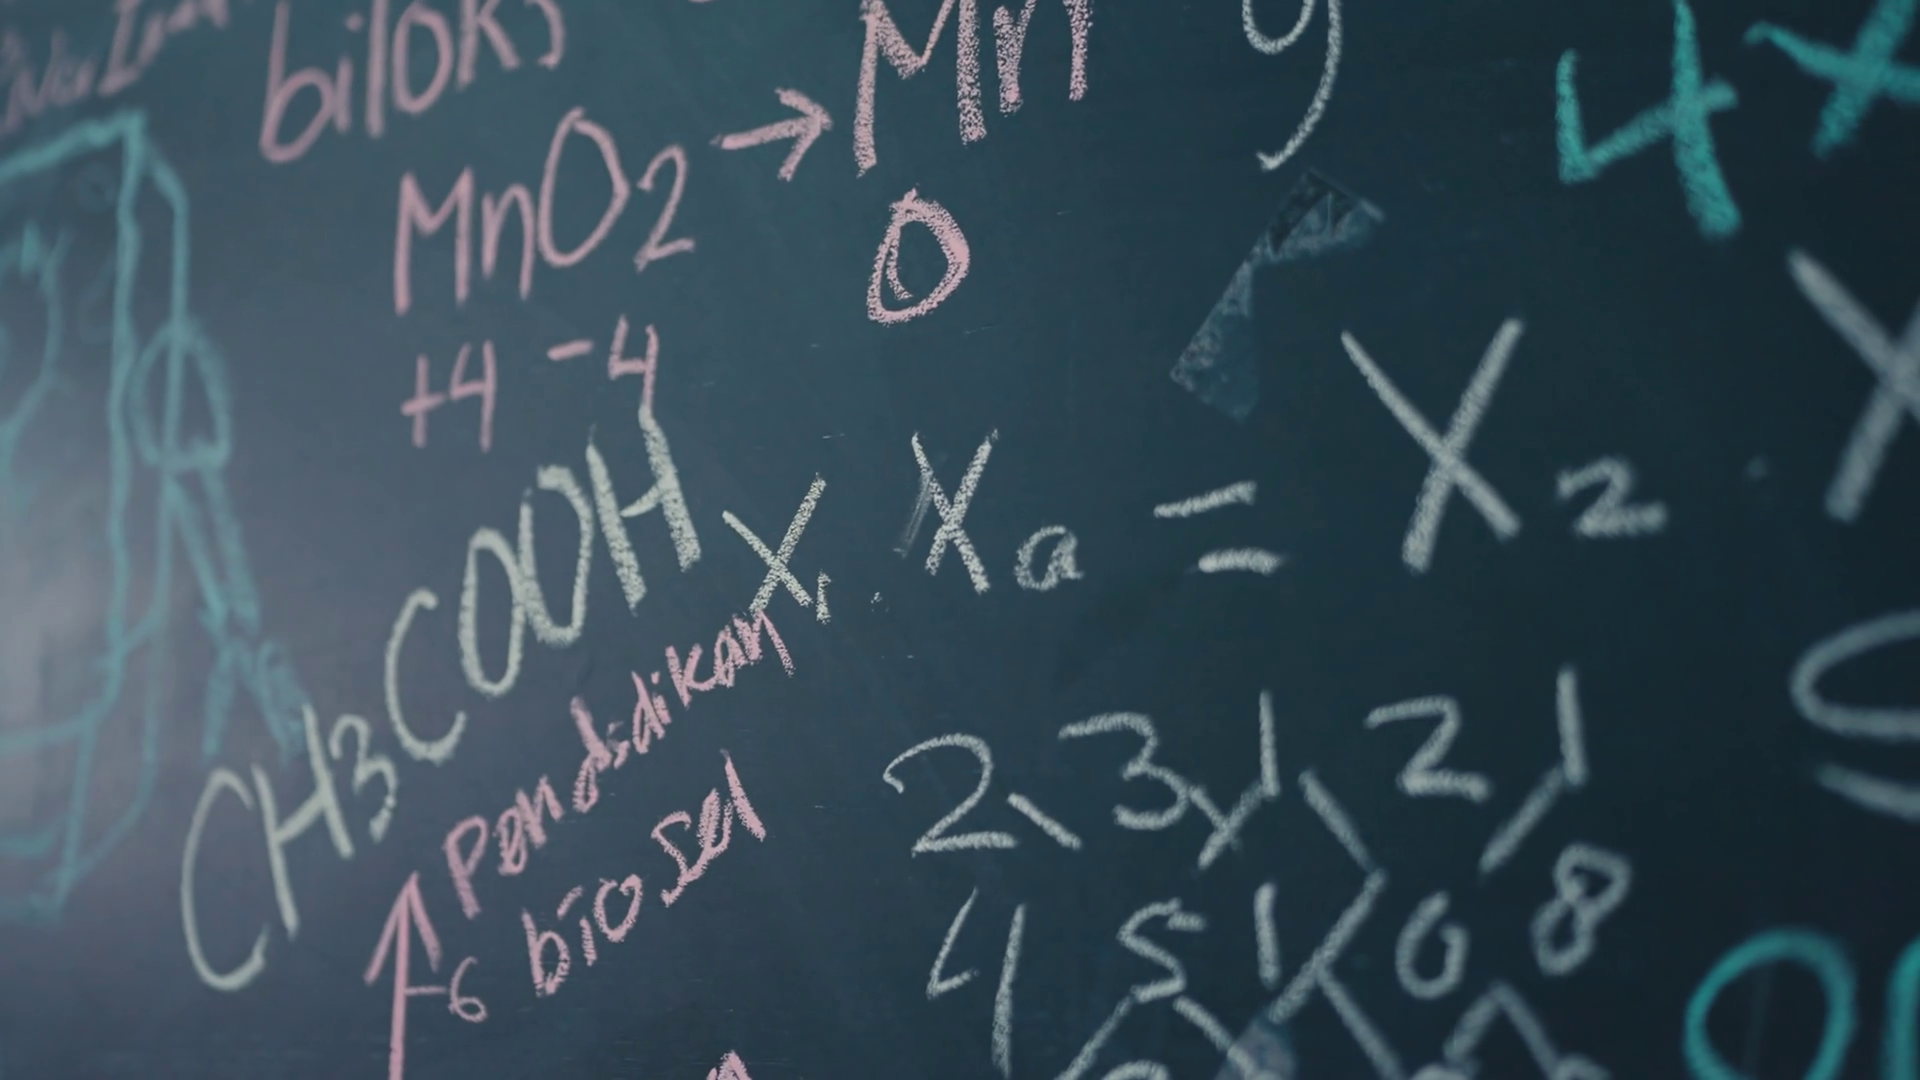 biloks
MnO2 → Mn
+4 -4 0
CH3COOH
X1 . Xa = X2 .
Pendidikan
bio sel
6
2 3 1 2 1
4 5 1 0 8
9
4 x